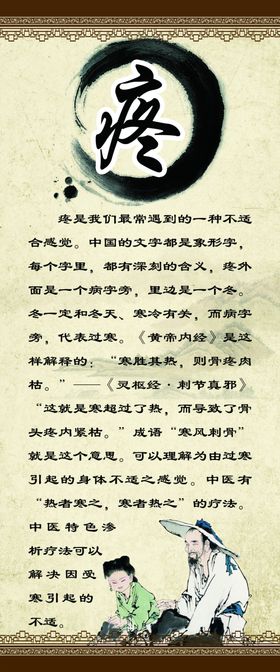 疼
疼是我们最常遇到的一种不适
合感觉。中国的文字都是象形字，
每个字里，都有深刻的含义，疼外
面是一个病字旁，里边是一个冬。
冬一定和冬天、寒冷有关，而病字
旁，代表过寒。《黄帝内经》是这
样解释的：“寒胜其热，则骨疼肉
枯。”——《灵枢经·刺节真邪》
“这就是寒超过了热，而导致了骨
头疼内紧枯。”成语“寒风刺骨”
就是这个意思。可以理解为由过寒
引起的身体不适之感觉。中医有
“热者寒之，寒者热之”的疗法。
中医特色渗
析疗法可以
解决因受
寒引起的
不适。